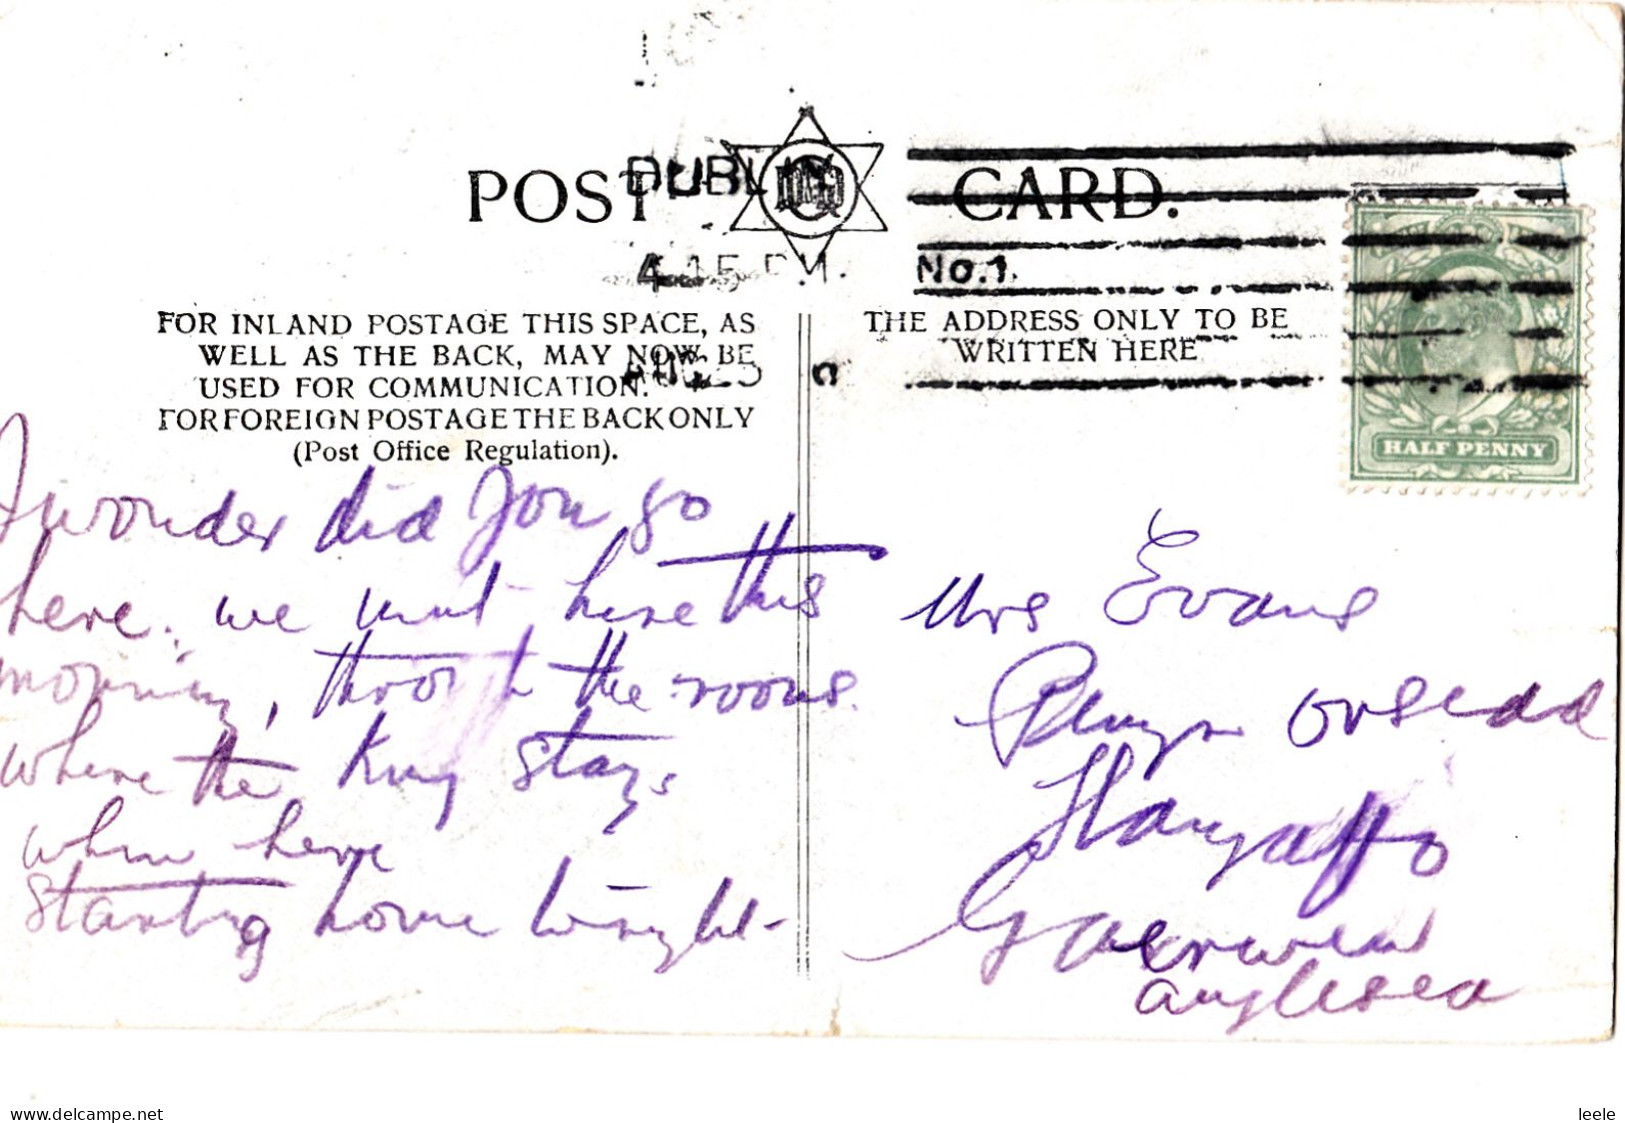 POST CARD.
DUBLIN
4 15 PM.
No.1.
AUG 25
FOR INLAND POSTAGE THIS SPACE, AS
WELL AS THE BACK, MAY NOW BE
USED FOR COMMUNICATION.
FOR FOREIGN POSTAGE THE BACK ONLY
(Post Office Regulation).
THE ADDRESS ONLY TO BE
WRITTEN HERE
HALF PENNY
I wonder did you go
here. we went here this
morning, through the rooms
where the King stays
when here
Starting home tonight-
Mrs Evans
Penyr orsedd
Llangaffo
Gaerwen
Anglesea
www.delcampe.net
leele